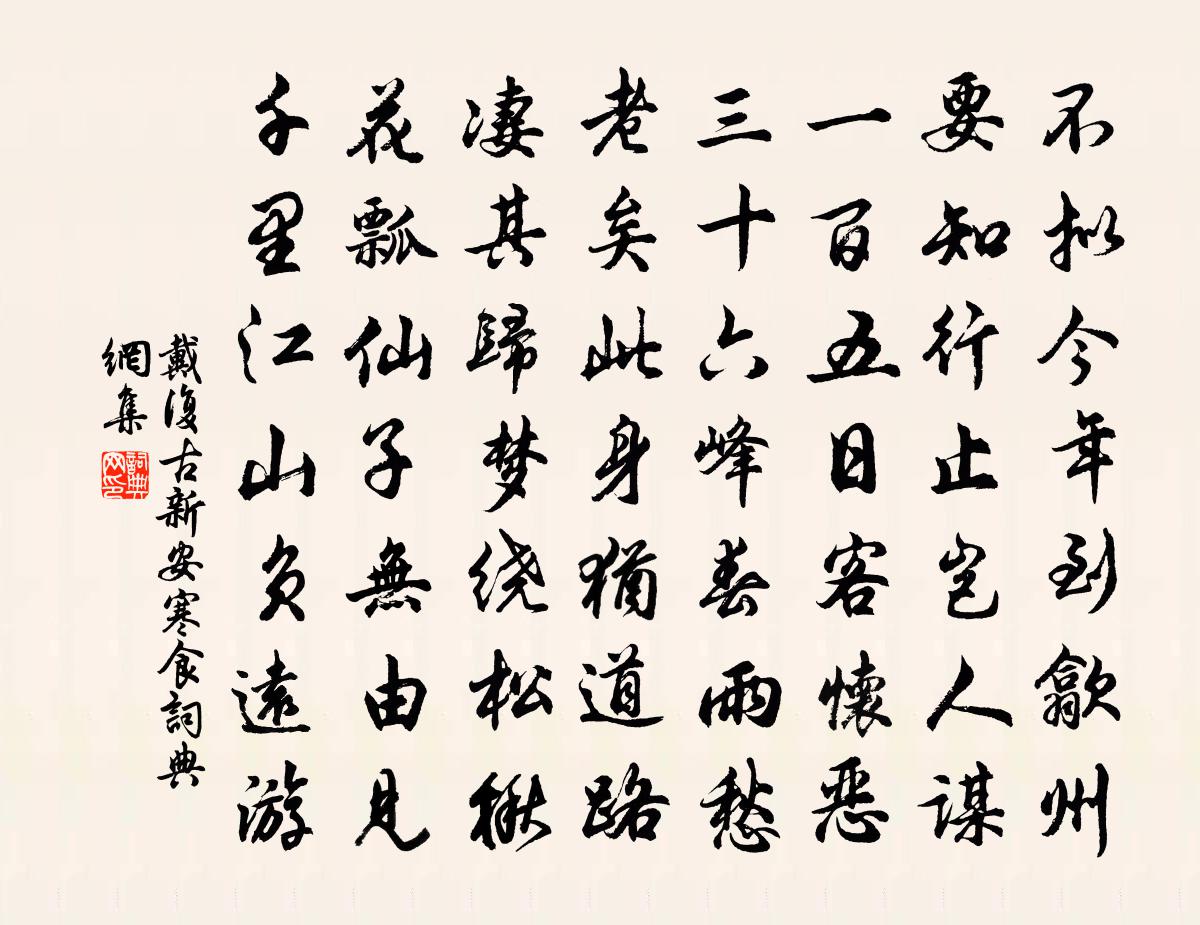 不拟今年到歙州
要知行止岂人谋
一百五日客懷恶
三十六峰春雨愁
老矣此身猶道路
凄其歸梦绕松楸
花瓢仙子無由見
千里江山负遠游
戴復古新安寒食詞典
網集
詞典
网印